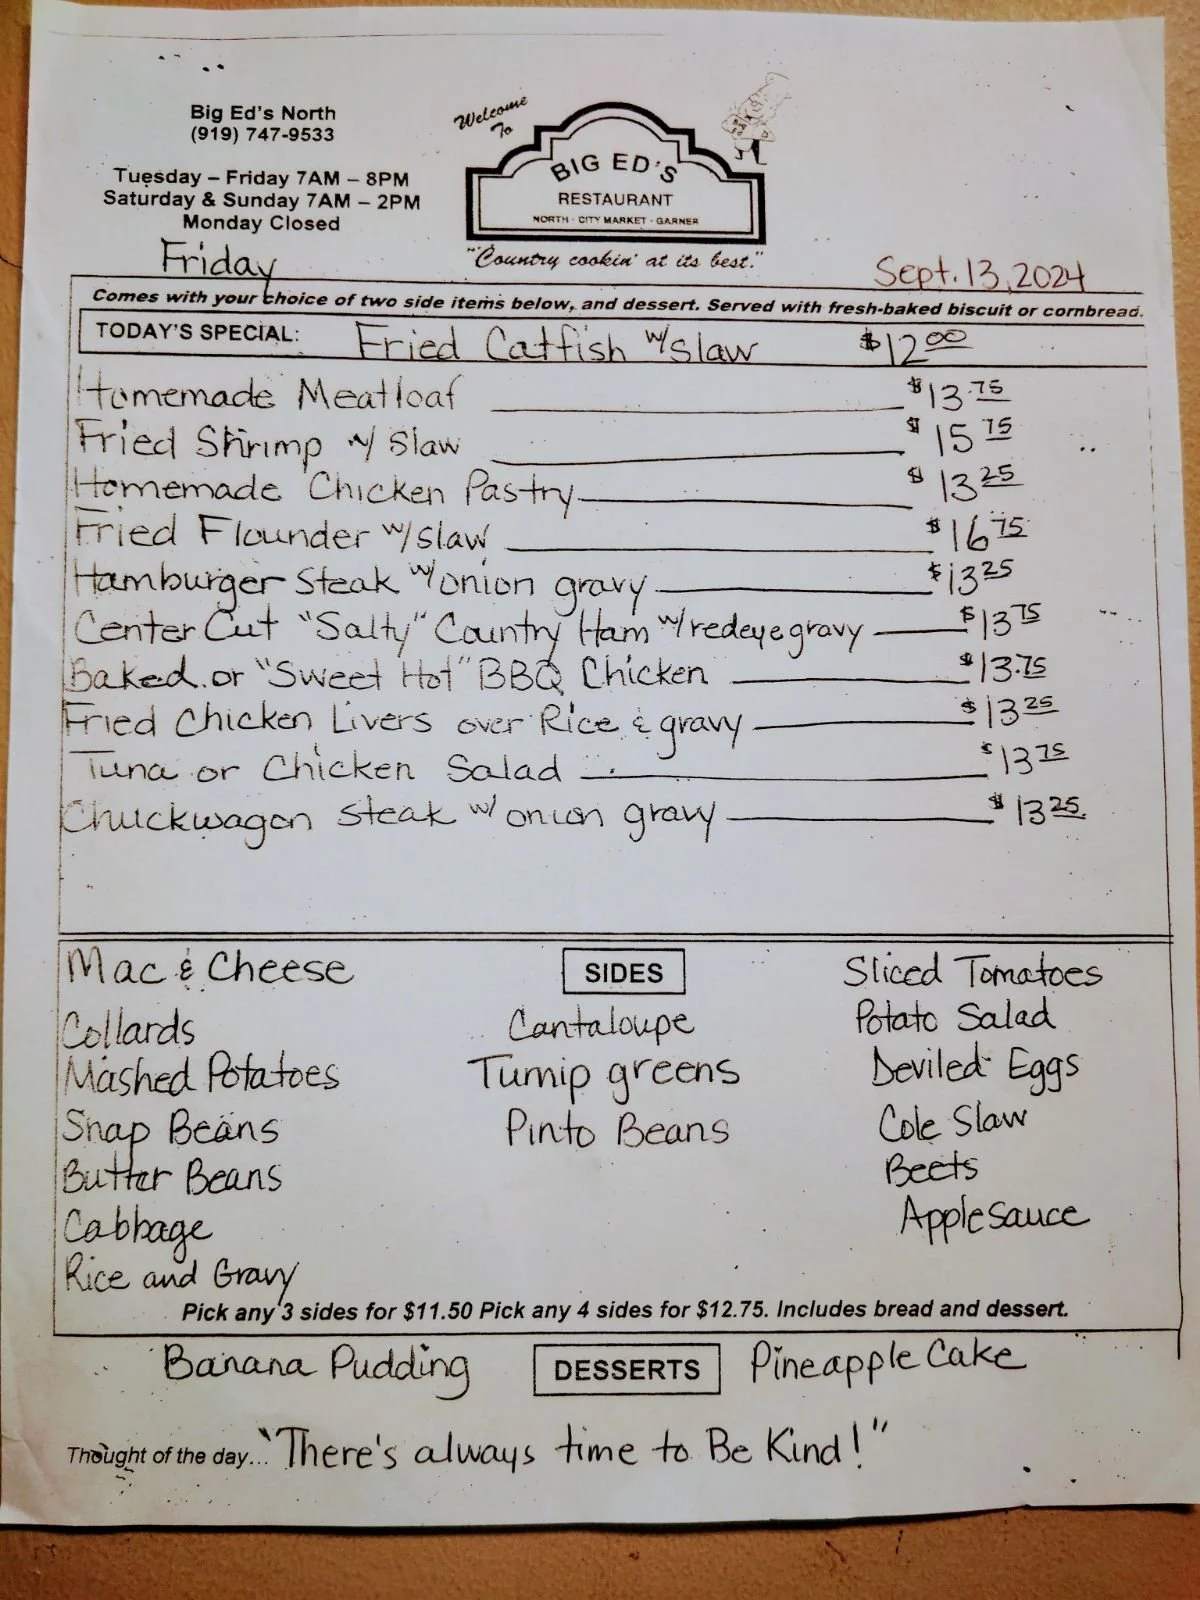 Big Ed's North
(919) 747-9533
Tuesday – Friday 7AM – 8PM
Saturday & Sunday 7AM – 2PM
Monday Closed
Welcome
To
BIG ED'S
RESTAURANT
NORTH · CITY MARKET · GARNER
"Country cookin' at its best."
Friday
Sept. 13, 2024
Comes with your choice of two side items below, and dessert. Served with fresh-baked biscuit or cornbread.
TODAY'S SPECIAL: Fried Catfish w/slaw $12.00
Homemade Meatloaf $13.75
Fried Shrimp w/ slaw $15.75
Homemade Chicken Pastry $13.25
Fried Flounder w/slaw $16.75
Hamburger Steak w/onion gravy $13.25
Center Cut "Salty" Country Ham w/redeye gravy $13.75
Baked or "Sweet Hot" BBQ Chicken $13.75
Fried Chicken Livers over Rice & gravy $13.25
Tuna or Chicken Salad $13.75
Chuckwagon steak w/onion gravy $13.25
SIDES
Mac & Cheese
Collards
Mashed Potatoes
Snap Beans
Butter Beans
Cabbage
Rice and Gravy
Cantaloupe
Turnip greens
Pinto Beans
Sliced Tomatoes
Potato Salad
Deviled Eggs
Cole Slaw
Beets
Applesauce
Pick any 3 sides for $11.50 Pick any 4 sides for $12.75. Includes bread and dessert.
Banana Pudding DESSERTS Pineapple Cake
Thought of the day... "There's always time to Be Kind!"